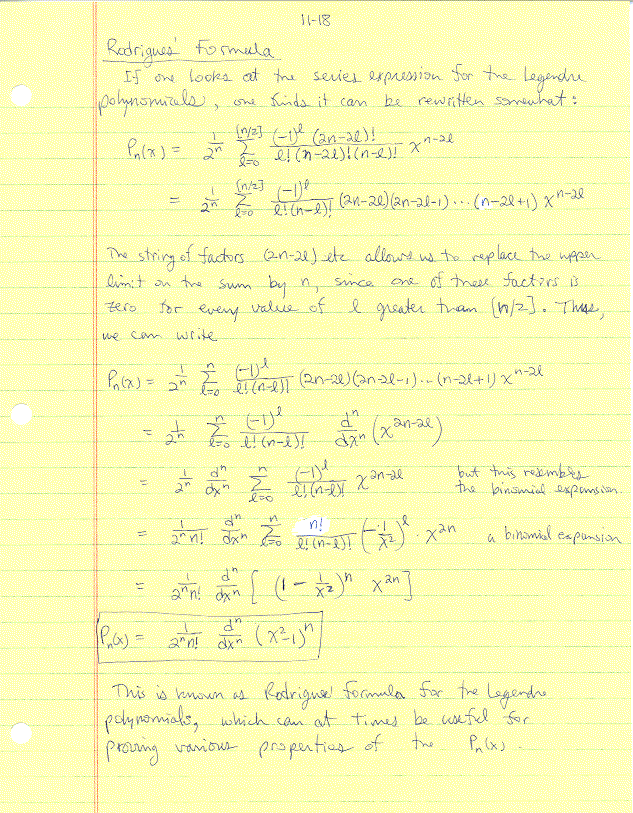 11-18
Rodrigues' Formula
If one looks at the series expression for the Legendre
polynomials, one finds it can be rewritten somewhat:
Pn(x) = 1/2^n Σ_{l=0}^{[n/2]} (-1)^l (2n-2l)! / l!(n-2l)!(n-l)! x^{n-2l}
= 1/2^n Σ_{l=0}^{[n/2]} (-1)^l / l!(n-l)! (2n-2l)(2n-2l-1)...(n-2l+1) x^{n-2l}
The string of factors (2n-2l) etc allows us to replace the upper
limit on the sum by n, since one of these factors is
zero for every value of l greater than [n/2]. Thus,
we can write
Pn(x) = 1/2^n Σ_{l=0}^{n} (-1)^l / l!(n-l)! (2n-2l)(2n-2l-1)...(n-2l+1) x^{n-2l}
= 1/2^n Σ_{l=0}^{n} (-1)^l / l!(n-l)! d^n/dx^n (x^{2n-2l})
= 1/2^n d^n/dx^n Σ_{l=0}^{n} (-1)^l / l!(n-l)! x^{2n-2l} but this resembles
the binomial expansion.
= 1/2^n n! d^n/dx^n Σ_{l=0}^{n} n! / l!(n-l)! (-1/x^2)^l · x^{2n} a binomial expansion
= 1/2^n n! d^n/dx^n [ (1 - 1/x^2)^n x^{2n} ]
Pn(x) = 1/2^n n! d^n/dx^n (x^2-1)^n
This is known as Rodrigues' formula for the Legendre
polynomials, which can at times be useful for
proving various properties of the Pn(x).